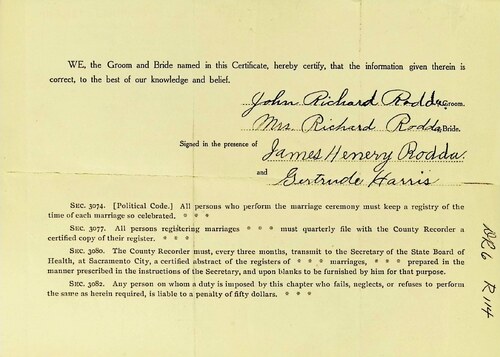 WE, the Groom and Bride named in this Certificate, hereby certify, that the information given therein is
correct, to the best of our knowledge and belief.
John Richard Rodda Groom.
Mrs. Richard Rodda Bride.
Signed in the presence of James Henery Rodda.
and Gertrude Harris
SEC. 3074. [Political Code.] All persons who perform the marriage ceremony must keep a registry of the
time of each marriage so celebrated. * * *
SEC. 3077. All persons registering marriages * * * must quarterly file with the County Recorder a
certified copy of their register. * * *
SEC. 3080. The County Recorder must, every three months, transmit to the Secretary of the State Board of
Health, at Sacramento City, a certified abstract of the registers of * * * marriages, * * * prepared in the
manner prescribed in the instructions of the Secretary, and upon blanks to be furnished by him for that purpose.
SEC. 3082. Any person on whom a duty is imposed by this chapter who fails, neglects, or refuses to perform
the same as herein required, is liable to a penalty of fifty dollars. * * *
R 114